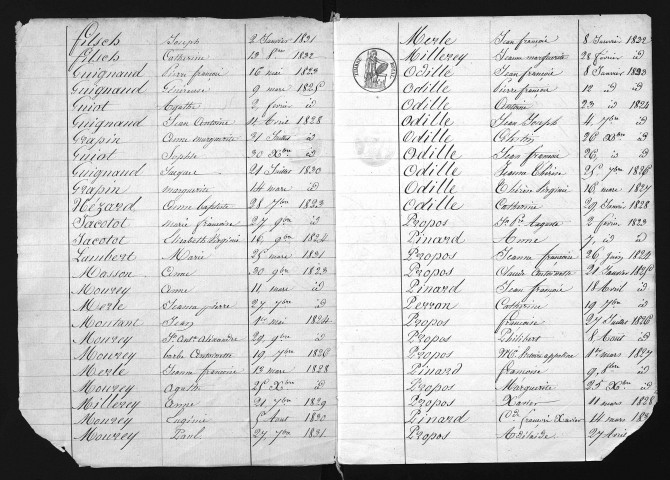 Filsch Joseph 2 Janvier 1831
Filsch Catherine 13 1832
Guignaud Pierre françois 16 mai 1823
Guignaud 9 mars 1825
Guiot Agathe 2 fevrier id
Guignaud Jean Antoine Avril 1828
Grapin Anne marguerite 21 Juillet id
Guiot Sophie 30 Xbre id
Guignaud Jacques 21 Juillet 1830
Grapin marguerite 14 mars id
Hézard Anne baptiste 28 7bre 1823
Jacotot marie françoise 27 9bre id
Jacotot Elisabeth Virginie 18 9bre 1824
Lambert Marie 25 mars 1831
Masson Anne 30 9bre 1823
Mourey Anne 11 mars id
Merle Jeanne pierre 27 7bre id
Moutant Jean 1er mai 1824
Mourey Alexandre 29 9bre id
Mourey barbe Antoinette 19 7bre 1826
Merle Jeanne françoise 13 mars 1828
Mourey Agathe 25 Xbre id
Millerey Anne 21 7bre 1829
Mourey Eugénie 5 Aout 1830
Mourey Paul 27 7bre 1831
Merle Jean françois 8 Janvier 1832
Millerey Jeanne marguerite 28 fevrier id
Odille Jean françois 8 Janvier 1823
Odille Pierre françois 12 id id
Odille Antoine 23 id 1824
Odille Jean Joseph 4 7bre id
Odille 26 Xbre id
Odille Jean françois 26 id id
Odille Jeanne Thérèse 25 7bre 1826
Odille Thérèse Virginie 18 mars 1827
Odille Catherine 29 Janvier 1828
Propos Auguste 2 fevrier 1823
Pinard Anne 7 id id
Propos Jeanne françoise 26 Juin 1824
Propos Claude Antoinette 21 Janvier
Pinard Jean françois 18 Avril id
Perron Catherine 19 7bre id
Propos françoise 27 Juillet 1826
Propos Philibert 8 Aout id
Propos appoline 1er mars 1827
Pinard françoise 9 id
Propos Marguerite 25 Xbre id
Propos Xavier 11 mars 1828
Pinard françois Xavier 14 mars
Propos Adélaide 27 Avril